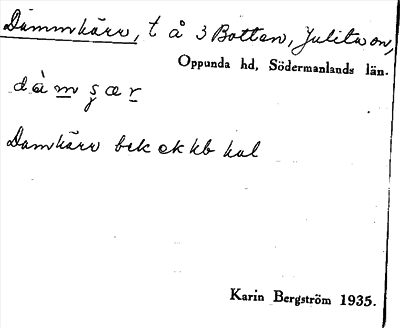 Dämmkärr, t å 3 Botten, Julita sn,
Oppunda hd, Södermanlands län.
Damkärr bek ek kb kal
Karin Bergström 1935.